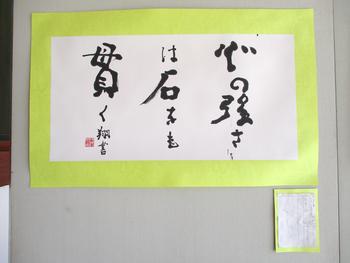 心の強さ
は石をも
貫く
翔書